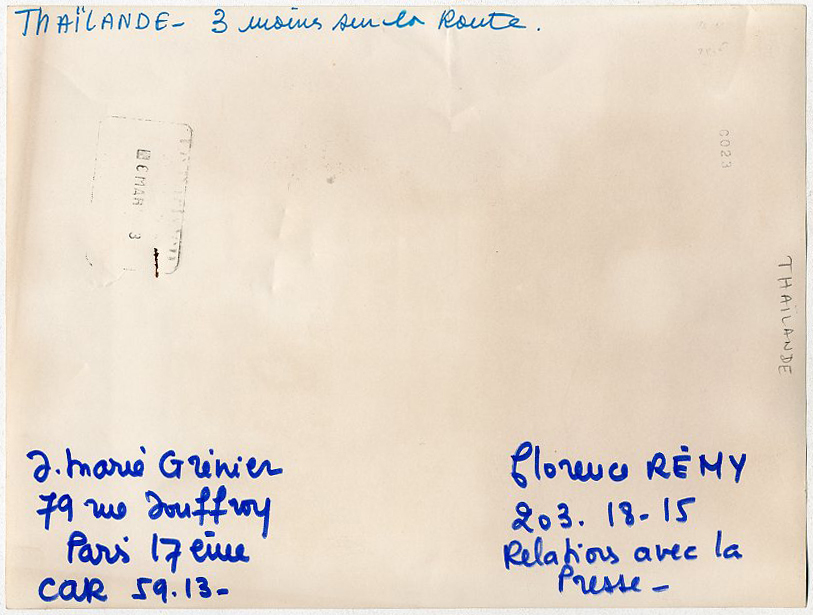 THAÏLANDE - 3 moins sur la Route.
C023
THAÏLANDE
J. Marie Grénier
79 rue Jouffroy
Paris 17 ème
CAR 59.13-
Florence RÉMY
203. 18-15
Relations avec la
Presse -